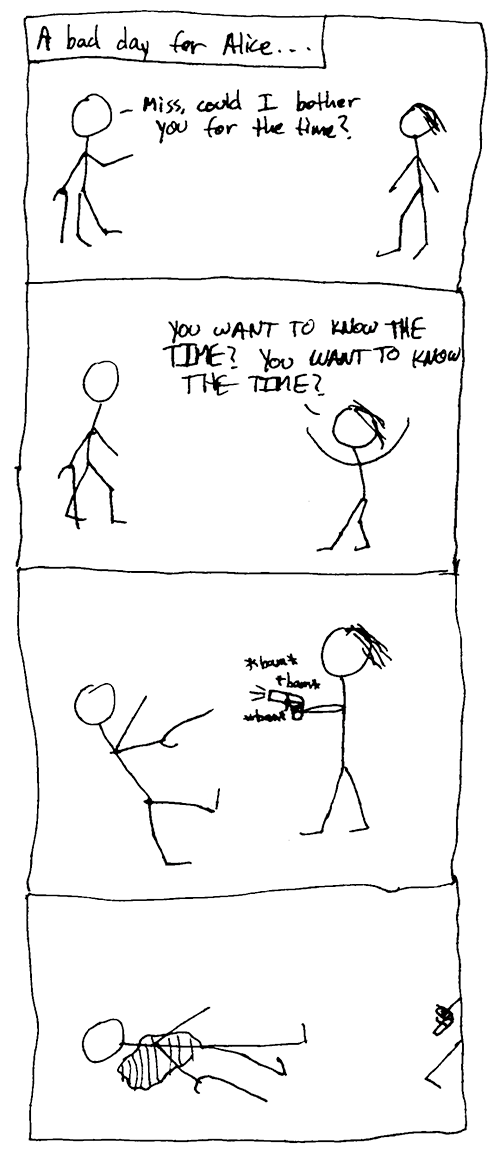 A bad day for Alice...
Miss, could I bother
you for the time?
YOU WANT TO KNOW THE
TIME? YOU WANT TO KNOW
THE TIME?
*bam*
*bam*
*bam*